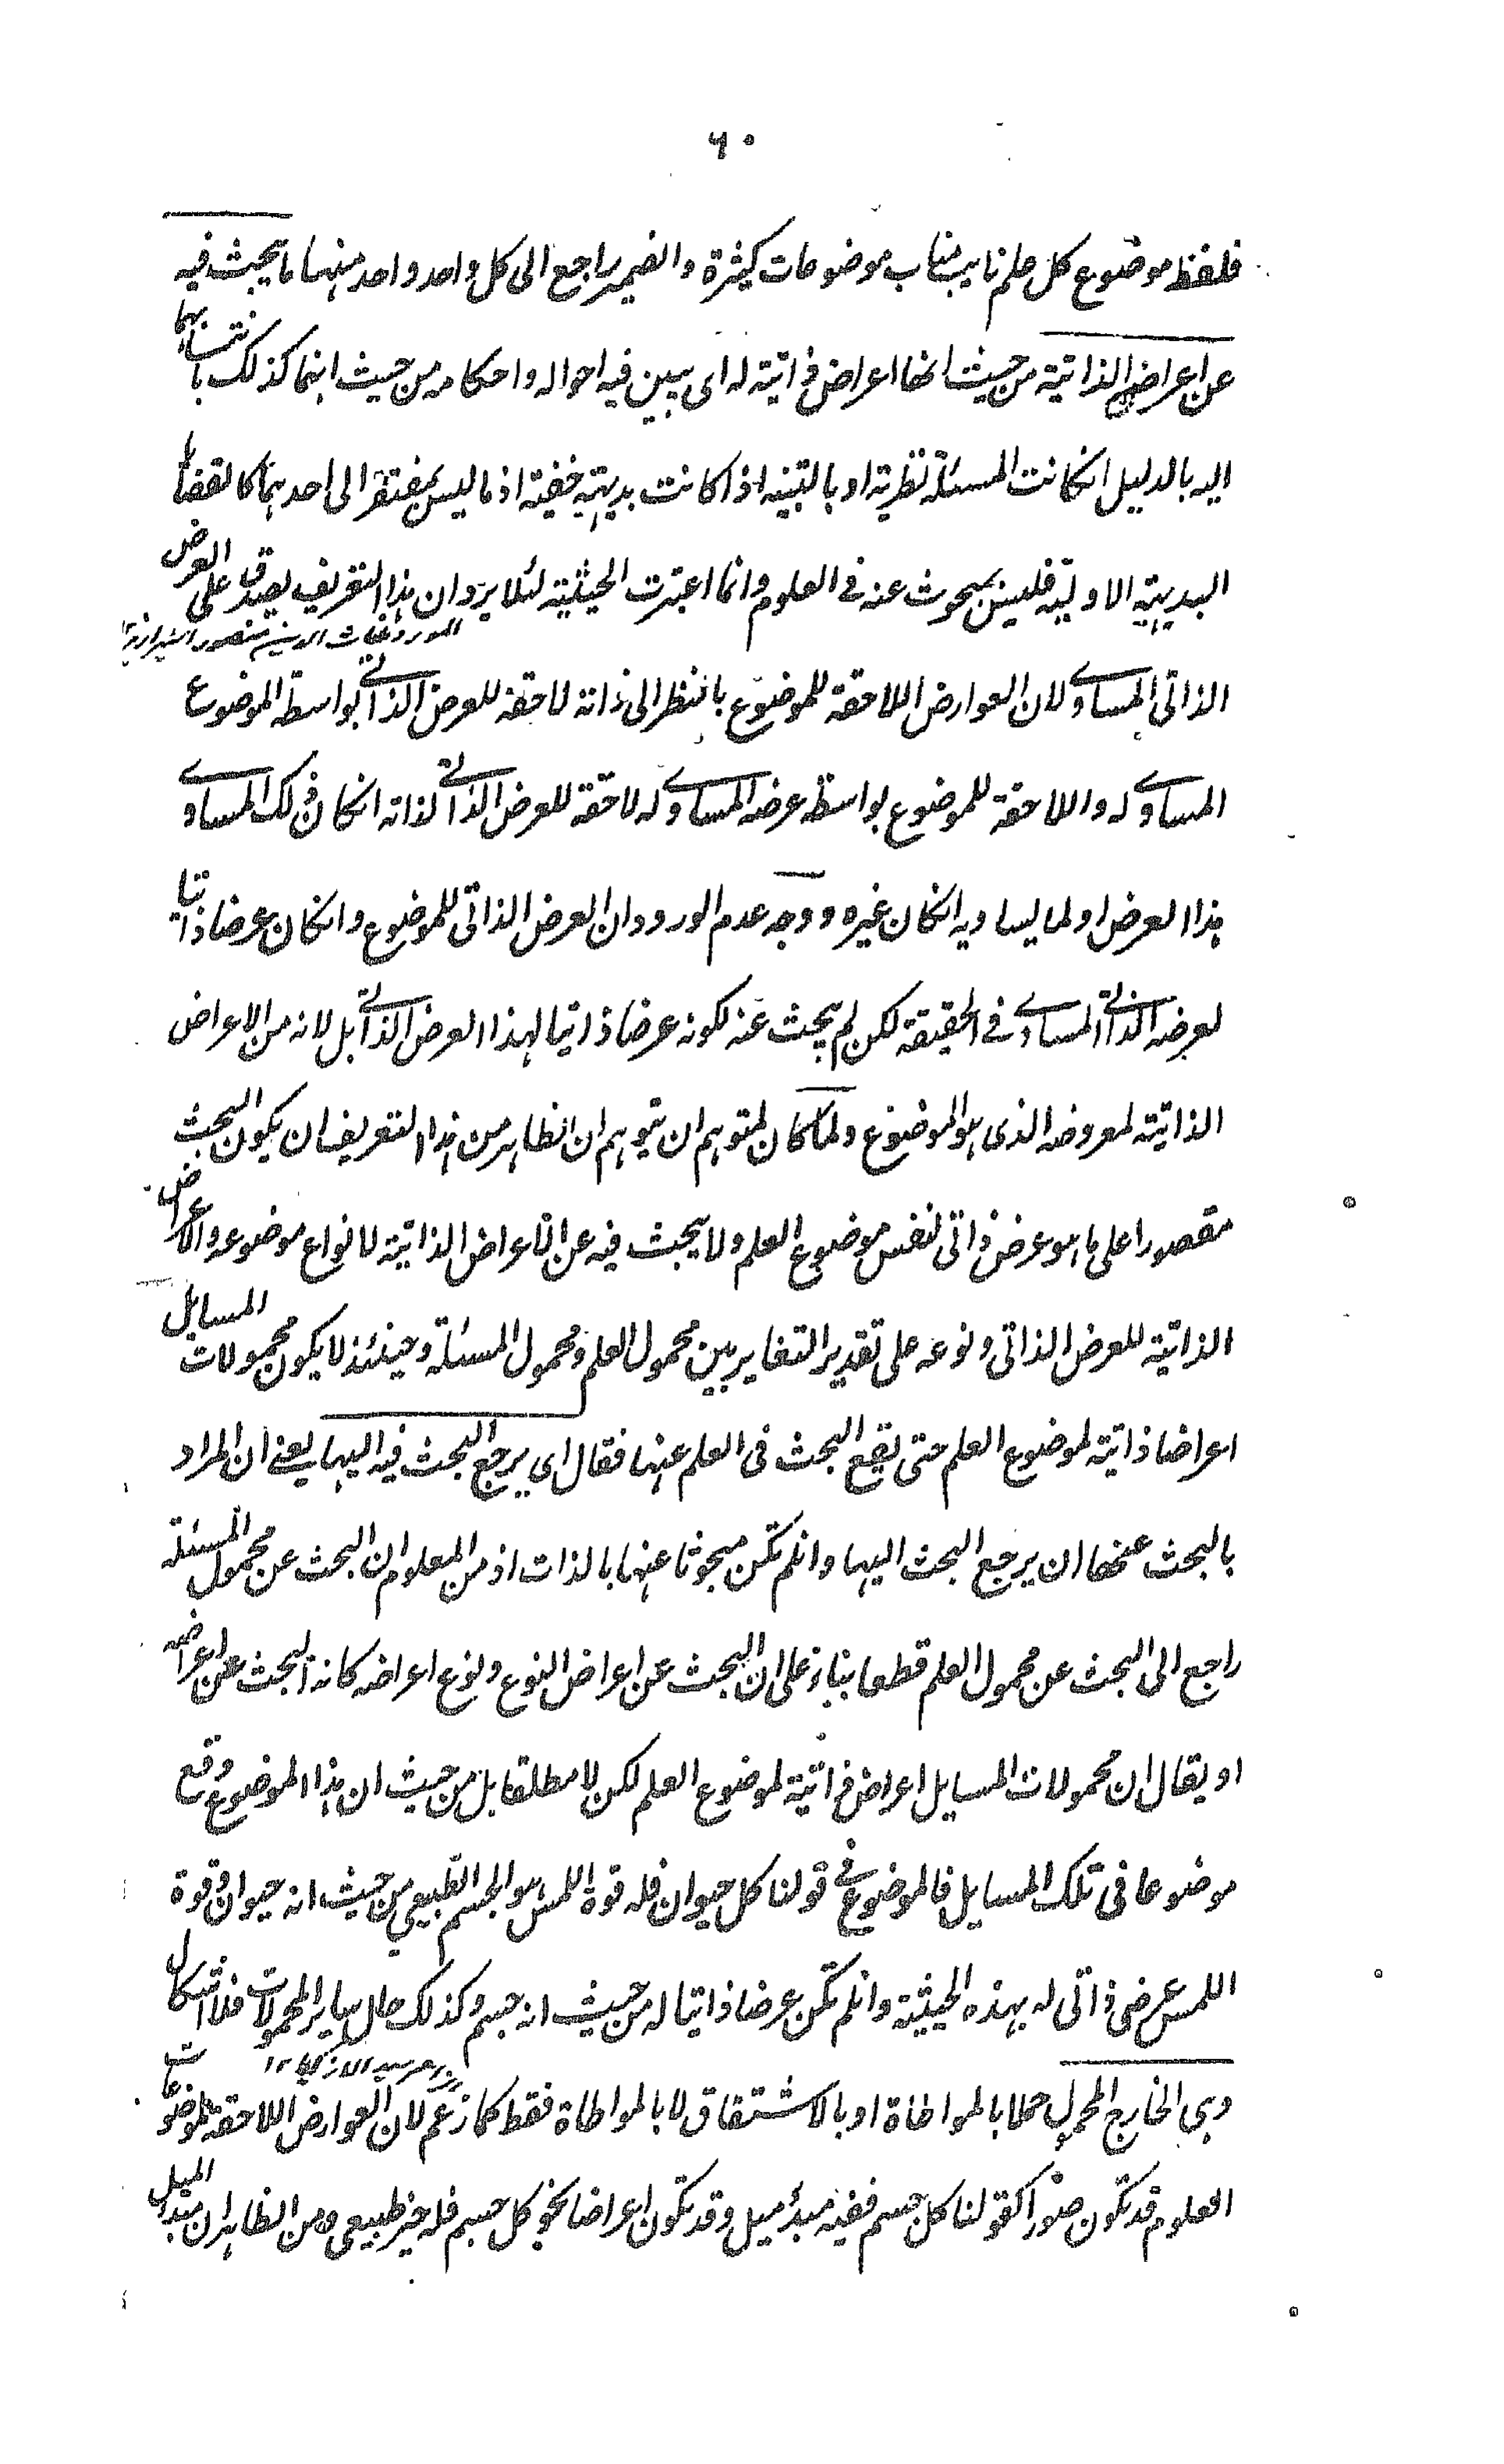 ٦٠
فلفظ موضوع كل علم نايب مناب موضوعات كثيرة والضمير راجع الى كل واحد واحد منها ما يبحث فيه
عن اعراضه الذاتية من حيث انها اعراض ذاتية له اى يبين فيه احواله واحكامه من حيث انها كذلك بانتسابها
اليه بالدليل انكانت المسئلة نظرية او بالتنبيه اذا كانت بديهية خفية اذ ما ليس بمفتقر الى احدهما كالقضايا
البديهية الاولية فليس بمبحوث عنه فى العلوم وانما اعتبرت الحيثية لئلا يرد ان هذا التعريف يصدق على العرض
المورد غياث الدين منصور الشيرازى
الذاتى المساوى لان العوارض اللاحقة للموضوع بالنظر الى ذاته لاحقة للعرض الذاتى بواسطة الموضوع
المساوى له واللاحقة للموضوع بواسطة عرضه المساوى له لاحقة للعرض الذاتى لذاته انكان ذلك المساوى
هذا العرض او لما يساويه انكان غيره ووجه عدم الورود ان العرض الذاتى للموضوع وانكان عرضا ذاتيا
لعرضه الذاتى المساوى فى الحقيقة لكن لم يبحث عنه لكونه عرضا ذاتيا لهذا العرض الذاتى بل لانه من الاعراض
الذاتية لمعروضه الذى هو الموضوع ولما كان لمتوهم ان يتوهم ان الظاهر من هذا التعريف ان يكون البحث
مقصورا على ما هو عرض ذاتى لنفس موضوع العلم ولا يبحث فيه عن الاعراض الذاتية لانواع موضوعه والاعراض
الذاتية للعرض الذاتى ونوعه على تقدير التغاير بين محمول العلم ومحمول المسئلة وحينئذ لا يكون محمولات المسايل
اعراضا ذاتية لموضوع العلم حتى يقع البحث فى العلم عنها فقال اى يرجع البحث فيه اليها يعنى ان المراد
بالبحث عنها ان يرجع البحث اليها وانلم تكن مبحوثا عنها بالذات اذ من المعلوم ان البحث عن محمول المسئلة
راجع الى البحث عن محمول العلم قطعا بناء على ان البحث عن اعراض النوع ونوع اعراضه كانه البحث عن اعراضه
او يقال ان محمولات المسايل اعراض ذاتية لموضوع العلم لكن لا مطلقا بل من حيث ان هذا الموضوع وقع
موضوعا فى تلك المسايل فالموضوع فى قولنا كل حيوان فله قوة اللمس هو الجسم الطبيعى من حيث انه حيوان وقوة
اللمس عرض ذاتى له بهذه الحيثية وانلم تكن عرضا ذاتيا له من حيث انه جسم وكذلك حال ساير المحمولات فلا اشكال
وهى الخارج المحمول حملا بالمواطاة او بالاشتقاق لا بالمواطاة فقط كما زعم لان العوارض اللاحقة لموضوعات
العلوم قد تكون صورا كقولنا كل جسم ففيه مبدأ ميل وقد تكون اعراضا نحو كل جسم فله حيز طبيعى ومن الظاهر ان مبدأ الميل